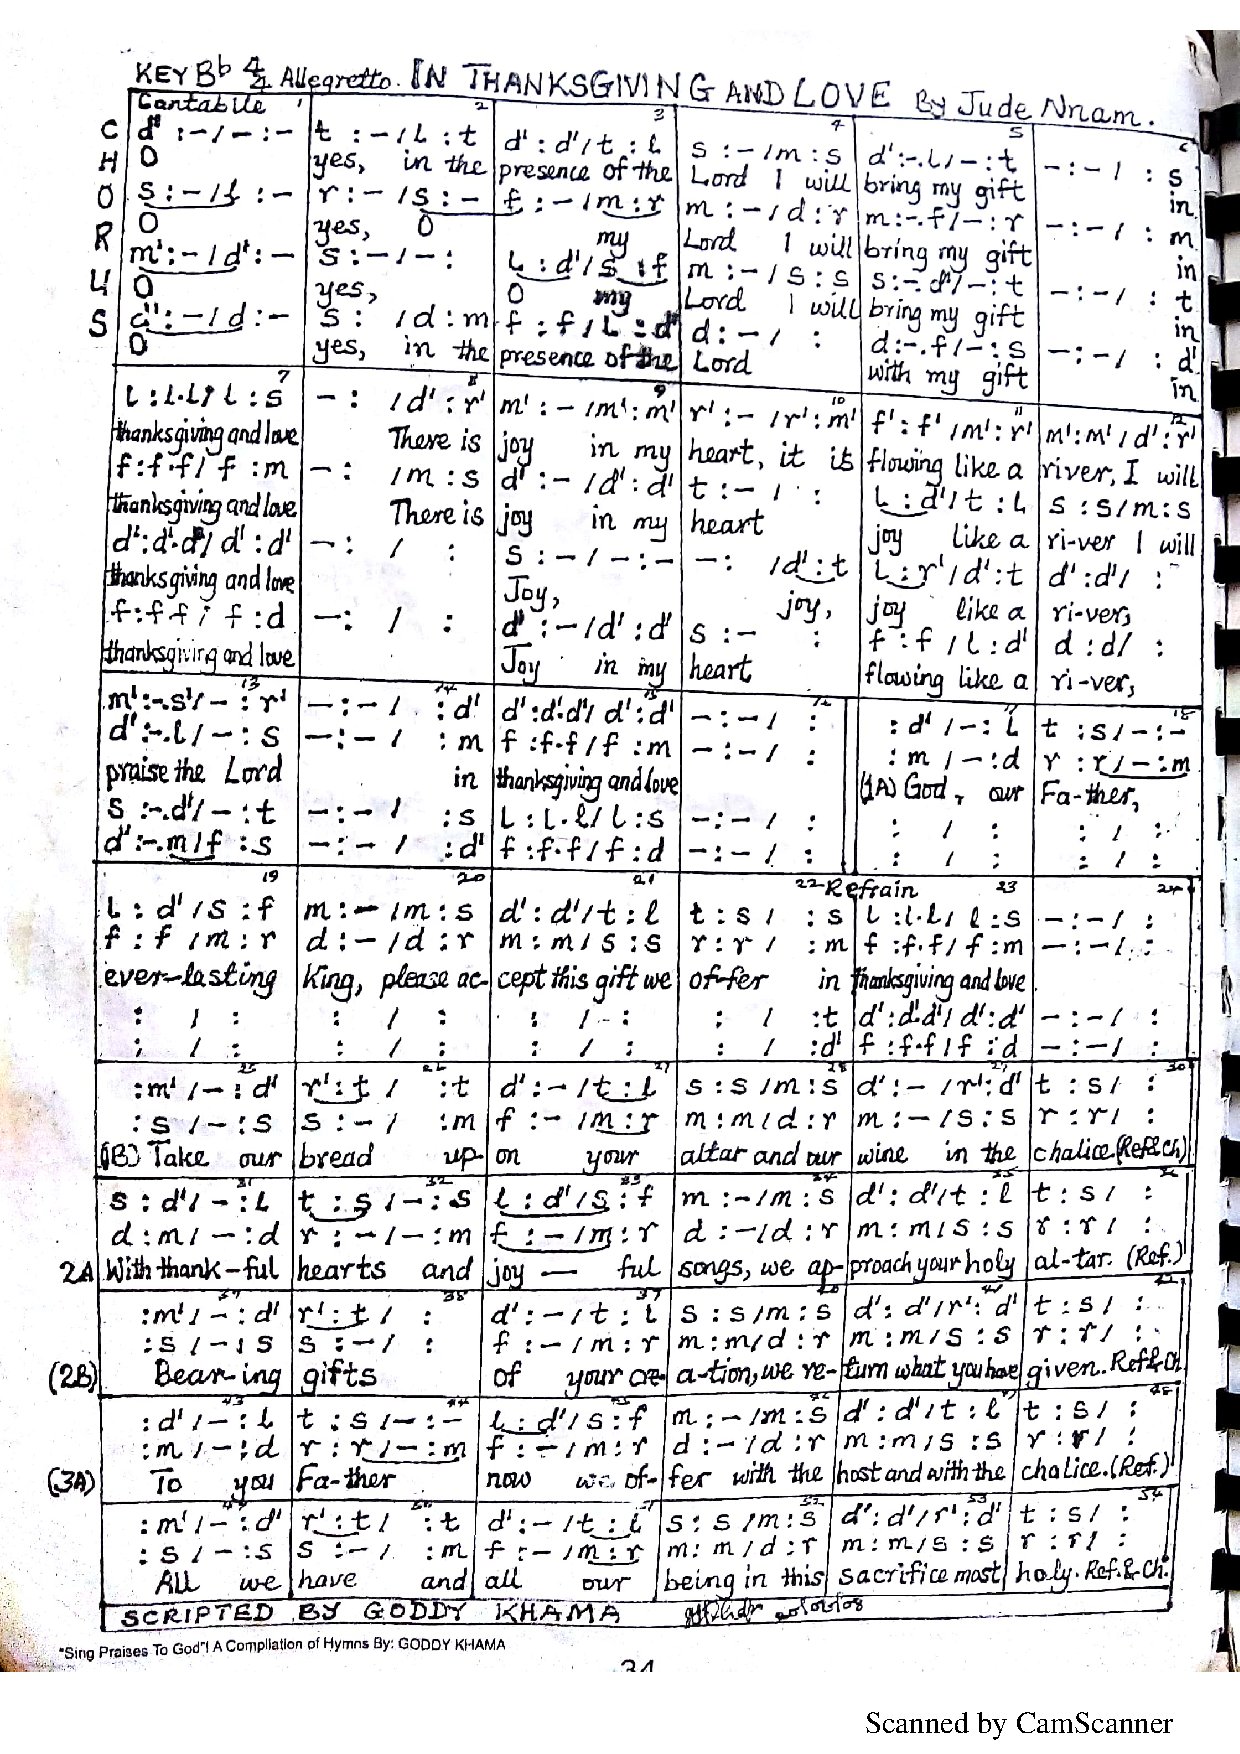 KEY B♭ 4/4 Allegretto. IN THANKSGIVING AND LOVE By Jude Nnam.
CHORUS
Cantabile 1 2 3 4 5 6
d' :-/-:- | t :-/l :t | d' :d'/t :l | s :-/m :s | d':-.l/-:t | -:-/ :s
O | yes, in the | presence of the | Lord I will | bring my gift | in
s :-/f :- | r :-/s :- | f :-/m :r | m :-/d :r | m:-.f/-:r | -:-/ :m
O | yes, O | my | Lord I will | bring my gift | in
m' :-/d' :- | s :-/-: | l :d'/s :f | m :-/s :s | s:-.d'/-:t | -:-/ :t
O | yes, | O my | Lord I will | bring my gift | in
:-/d :- | s : /d :m | f :f/l :d' | d :-/ : | d:-.f/-:s | -:-/ :d'
O | yes, in the | presence of the | Lord | with my gift | in
7 8 9 10 11 12
l :l.l/l :s | -: /d' :r' | m' :-/m' :m' | r' :-/r' :m' | f' :f'/m' :r' | m':m'/d' :r'
thanksgiving and love | There is | joy in my | heart, it is | flowing like a | river, I will
f :f.f/f :m | -: /m :s | d' :-/d' :d' | t :-/ : | l :d'/t :l | s :s/m :s
thanksgiving and love | There is | joy in my | heart | joy like a | ri-ver I will
d' :d'.d'/d' :d' | -: / : | s :-/-:- | -: /d' :t | l :r'/d' :t | d' :d'/ :
thanksgiving and love | Joy, | joy, | joy like a | ri-ver,
f :f.f/f :d | -: / : | d' :-/d' :d' | s :- : | f :f/l :d' | d :d/ :
thanksgiving and love | Joy in my | heart | flowing like a | ri-ver,
13 14 15 17 18
m':-.s'/-:r' | -:-/ :d' | d' :d'.d'/d' :d' | -:-/ : | :d'/-:l | t :s/-:-
d':-.l/-:s | -:-/ :m | f :f.f/f :m | -:-/ : | :m/-:d | r :r/-:m
praise the Lord | in | thanksgiving and love | (1A) God, our | Fa-ther,
s :-.d'/-:t | -:-/ :s | l :l.l/l :s | -:-/ : | : / : | : / :
d':-.m/f :s | -:-/ :d' | f :f.f/f :d | -:-/ : | : / : | : / :
19 20 21 22 Refrain 23 24
l :d'/s :f | m :-/m :s | d' :d'/t :l | t :s/ :s | l :l.l/l :s | -:-/ :
f :f/m :r | d :-/d :r | m :m/s :s | r :r/ :m | f :f.f/f :m | -:-/ :
ever-lasting | King, please ac- | cept this gift we | of-fer in | thanksgiving and love
: / : | : / : | : /-: | : / :t | d' :d'.d'/d' :d' | -:-/ :
: / : | : / : | : / : | : / :d' | f :f.f/f :d | -:-/ :
25 26 27 28 29 30
:m'/-:d' | r' :t/ :t | d' :-/t :l | s :s/m :s | d' :-/r' :d' | t :s/ :
:s/-:s | s :-/ :m | f :-/m :r | m :m/d :r | m :-/s :s | r :r/ :
(1B) Take our | bread up- | on your | altar and our | wine in the | chalice (Ref&Ch)
31 32 33 34 35 36
s :d'/-:l | t :s/-:s | l :d'/s :f | m :-/m :s | d' :d'/t :l | t :s/ :
d :m/-:d | r :-/-:m | f :-/m :r | d :-/d :r | m :m/s :s | r :r/ :
2A With thank-ful | hearts and | joy — ful | songs, we ap- | proach your holy | al-tar. (Ref.)
37 38 39 40 41 42
:m'/-:d' | r' :t/ : | d' :-/t :l | s :s/m :s | d' :d'/r' :d' | t :s/ :
:s/-:s | s :-/ : | f :-/m :r | m :m/d :r | m :m/s :s | r :r/ :
(2B) Bear-ing | gifts | of your | a-tion, we re- | turn what you have | given. Ref&Ch
43 44 45 46 47 48
:d'/-:l | t :s/-:- | l :d'/s :f | m :-/m :s | d' :d'/t :l | t :s/ :
:m/-:d | r :r/-:m | f :-/m :r | d :-/d :r | m :m/s :s | r :r/ :
(3A) To you | Fa-ther | now we of- | fer with the | host and with the | chalice. (Ref.)
49 50 51 52 53 54
:m'/-:d' | r' :t/ :t | d' :-/t :l | s :s/m :s | d' :d'/r' :d' | t :s/ :
:s/-:s | s :-/ :m | f :-/m :r | m :m/d :r | m :m/s :s | r :r/ :
All we | have and | all our | being in this | sacrifice most | holy. Ref.&Ch.
SCRIPTED BY GODDY KHAMA
"Sing Praises To God"! A Compilation of Hymns By: GODDY KHAMA
34
Scanned by CamScanner